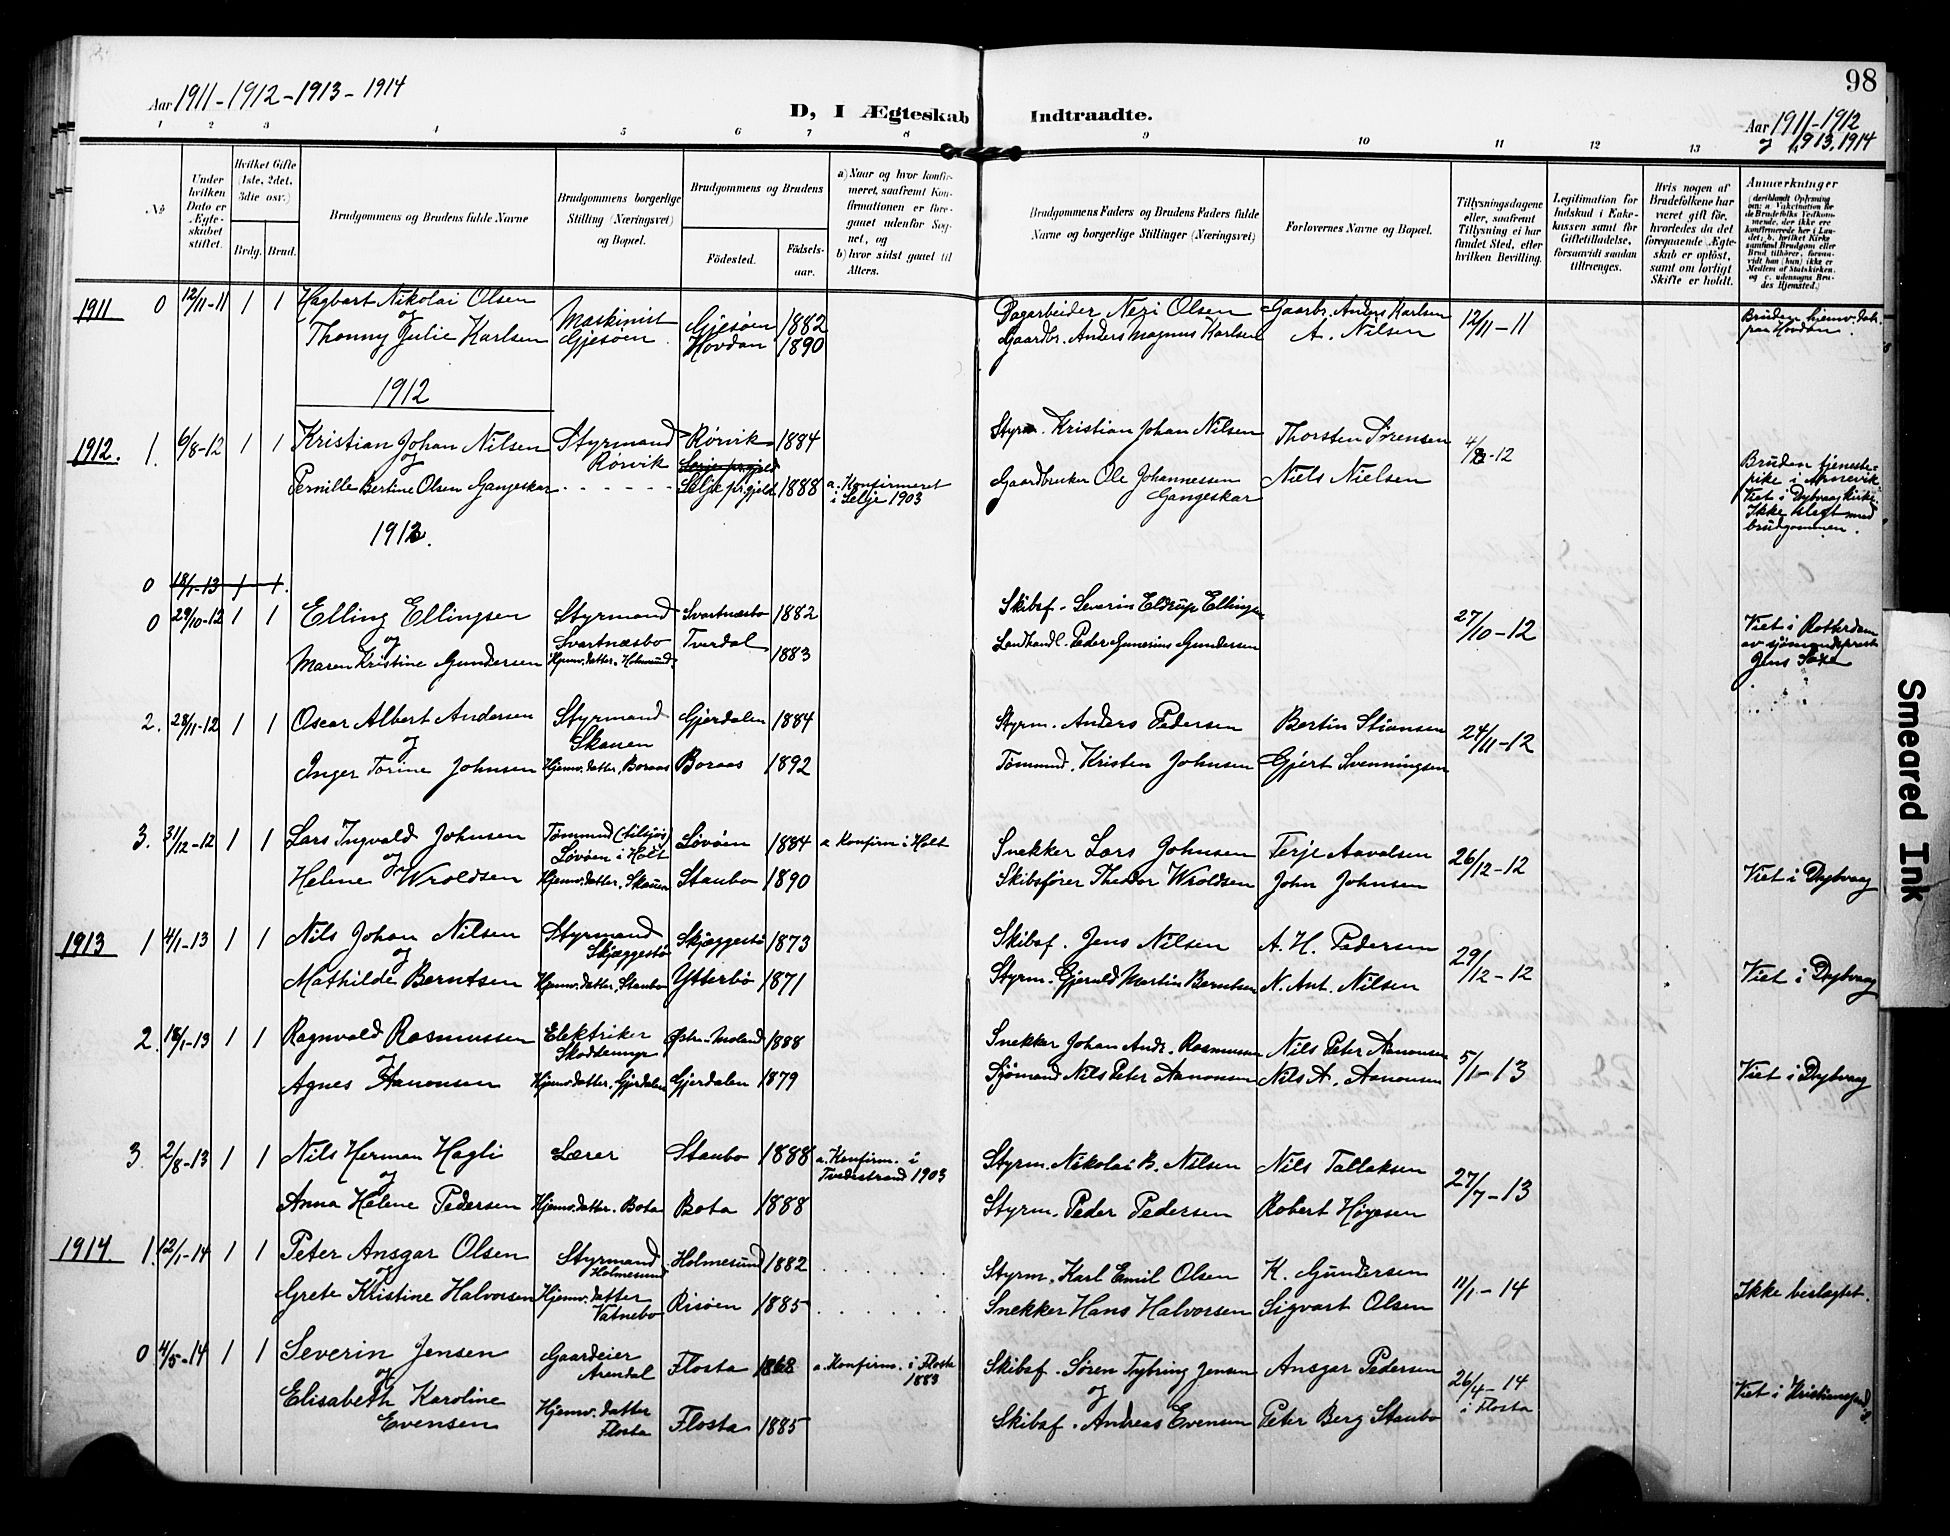 98
Aar 1911-1912-1913-1914
D, I Ægteskab Indtraadte.
Aar 1911-1912
og 1913, 1914
1 2 3 4 5 6 7 8 9 10 11 12 13
No
Under hvilken Dato er Ægteskabet stiftet.
Hvilket Gifte (1ste, 2det, 3die osv.)
Brdg. Brud.
Brudgommens og Brudens fulde Navne
Brudgommens borgerlige Stilling (Næringsvei) og Bopæl.
Brudgommens og Brudens
Fødested.
Fødselsaar.
a) Naar og hvor konfirmeret, saafremt Konfirmationen er foregaaet udenfor Sognet, og
b) hvor sidst gaaet til Alters.
Brudgommens Faders og Brudens Faders fulde Navne og borgerlige Stillinger (Næringsvei)
Forlovernes Navne og Bopæl.
Tillysningsdagene eller, saafremt Tillysning ei har fundet Sted, efter hvilken Bevilling.
Legitimation for Indskud i Enkekassen samt for Giftetilladelse, forsaavidt saadan tiltrænges.
Hvis nogen af Brudefolkene har været gift før, hvorledes da det foregaaende Ægteskab er opløst, samt om lovligt Skifte er holdt.
Anmærkninger
(deriblandt Oplysning om: a. Vakcination for de Brudefolks Vedkommende, der ikke ere konfirmerede her i Landet; b. hvilket Kirkesamfund Brudgom eller Brud tilhører, forsaavidt han (hun) ikke er Medlem af Statskirken, og c. udensogns Brudes Hjemsted.)
1911 0 12/11-11 1 1 Hagbart Nikolai Olsen Maskinist Gjesøen Gjesøen 1882 Dagarbeider Nezi Olsen Gaarbr. Anders Karlsen 12/11-11 Bruden hjemv. dat. paa Hovdan.
og
Thonny Julie Karlsen Hovdan 1890 Gaardbr. Anders Magnus Karlsen A. Nilsen
1912
1912. 1. 6/8-12 1 1 Kristian Johan Nilsen Styrmand Rørvik Rørvik 1884 Styrm. Kristian Johan Nilsen Thorsten Sørensen 4/8-12
og
Pernille Bertine Olsen Gangeskar Selje pr.gjeld 1888 a. Konfirmeret i Selje 1903 Gaardbruker Ole Johannessen Gangeskar Niels Nielsen
Bruden tjenestepike i Arnevik. Viet i Dybvaag kirke. Ikke slegt med brudgommen.
1912.
0 18/1-13 1 1.
0 29/10-12 1 1 Elling Ellingsen Styrmand Svartnæsbo Svartnæsbo 1882 Skibsf. Severin Eldrup Ellingsen 27/10-12 Viet i Rotterdam av sjømandsprest Jens
og
Maren Kristine Gundersen Hjemv. datter. Holmesund Tverdal 1883 Landhandl. Peder Gunerius Gundersen
2. 28/11-12 1 1 Oscar Albert Andersen Styrmand Skauen Gjerdalen 1884 Styrm. Anders Pedersen Bertin Stiansen 24/11-12
og
Inger Torine Johnsen Hjemv. datter, Boraas Boraas 1892 Tømmmd. Kristen Johnsen Gjert Svenningsen
3. 31/12-12 1 1 Lars Ingvald Johnsen Tømmmd (tilsjøs) Løvøen i Holt Løvøen 1884 a Konfirm i Holt Snekker Lars Johnsen Terje Aavalsen 26/12-12
og
Helene Wroldsen Hjemv. datter. Skauen Staubo 1890 Skibsfører Theodor Wroldsen John Johnsen Viet i Dybvaag
1913 1 4/1-13 1 1 Nils Johan Nilsen Styrmand Skjæggestø Skjæggestø 1873 Skibsf. Jens Nilsen A. H. Pedersen 29/12-12
og
Mathilde Berntsen Hjemv. datter. Staubo Ytterbø 1871 Styrm. Gjerald Martin Berntsen N. Ant. Nilsen Viet i Dybvaag
2. 18/1-13 1 1 Ragnvald Rasmussen Elektriker Østre-Moland 1888 Snekker Johan Andr. Rasmussen Nils Peter Aanonsen 5/1-13
og
Agnes Aanonsen Hjemv. datter. Gjerdalen Gjerdalen 1879 Sjømand Nils Peter Aanonsen Nils A. Aanonsen Viet i Dybvaag
3. 2/8-13 1 1 Nils Herman Hagli Lærer Staubo 1888 a. Konfirm. i Tvedestrand 1903 Styrm. Nikolai B. Nilsen Nils Tallaksen 27/7-13
og
Anna Helene Pedersen Hjemv. datter. Bota Bota 1888 Styrm. Peder Pedersen Robert Høyesen
1914. 1. 12/1-14 1 1 Peter Ansgar Olsen Styrmand Holmesund Holmesund 1882 Styrm. Karl Emil Olsen K. Gundersen 11/1-14
og
Grete Kristine Halvorsen Hjemv. datter Vatnebo Risøen 1885 Snekker Hans Halvorsen Sigvart Olsen Ikke beslægtet.
0 4/5-14 1 1 Severin Jensen Gaardeier Arendal Flosta 1868 a. Konfirm. i Flosta 1883 Skibsf. Søren Tybring Jensen Ansgar Pedersen 26/4-14 i Flosta
og
Elisabeth Karoline Evensen Hjemv. datter Flosta Flosta 1885 Skibsf. Andreas Evensen Peter Berg Staubo Viet i Kristiansand S.
Smeared Ink